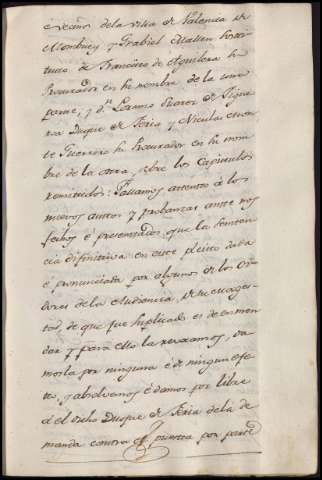 é vecinos de la villa de Valencia de
Mombuey y Grabiel Mallen
tituto de Francisco de Aguilera su
Procurador en su nombre de la una
parte, y Dn. Lorenzo Suarez de Figue
roa Duque de Feria y Nicolas
te Guerrero su Procurador en su nom
bre de la otra, sobre los Capitulos
remitidos: Fallamos attentos á los
nuevos autos y probanzas ante nos
fechos é presentados que la senten
cia difinitiva en este pleito dada
é pronunciada por algunos de los Oy
dores de la Audiencia, de su mages
tad, de que fue suplicado es de enmen
dar y para ello la revocamos, da
mosla por ninguna é de ningun efe
to, y absolvemos é damos por libre
á el dicho Duque de Feria de la de
manda contra el puesta por parte